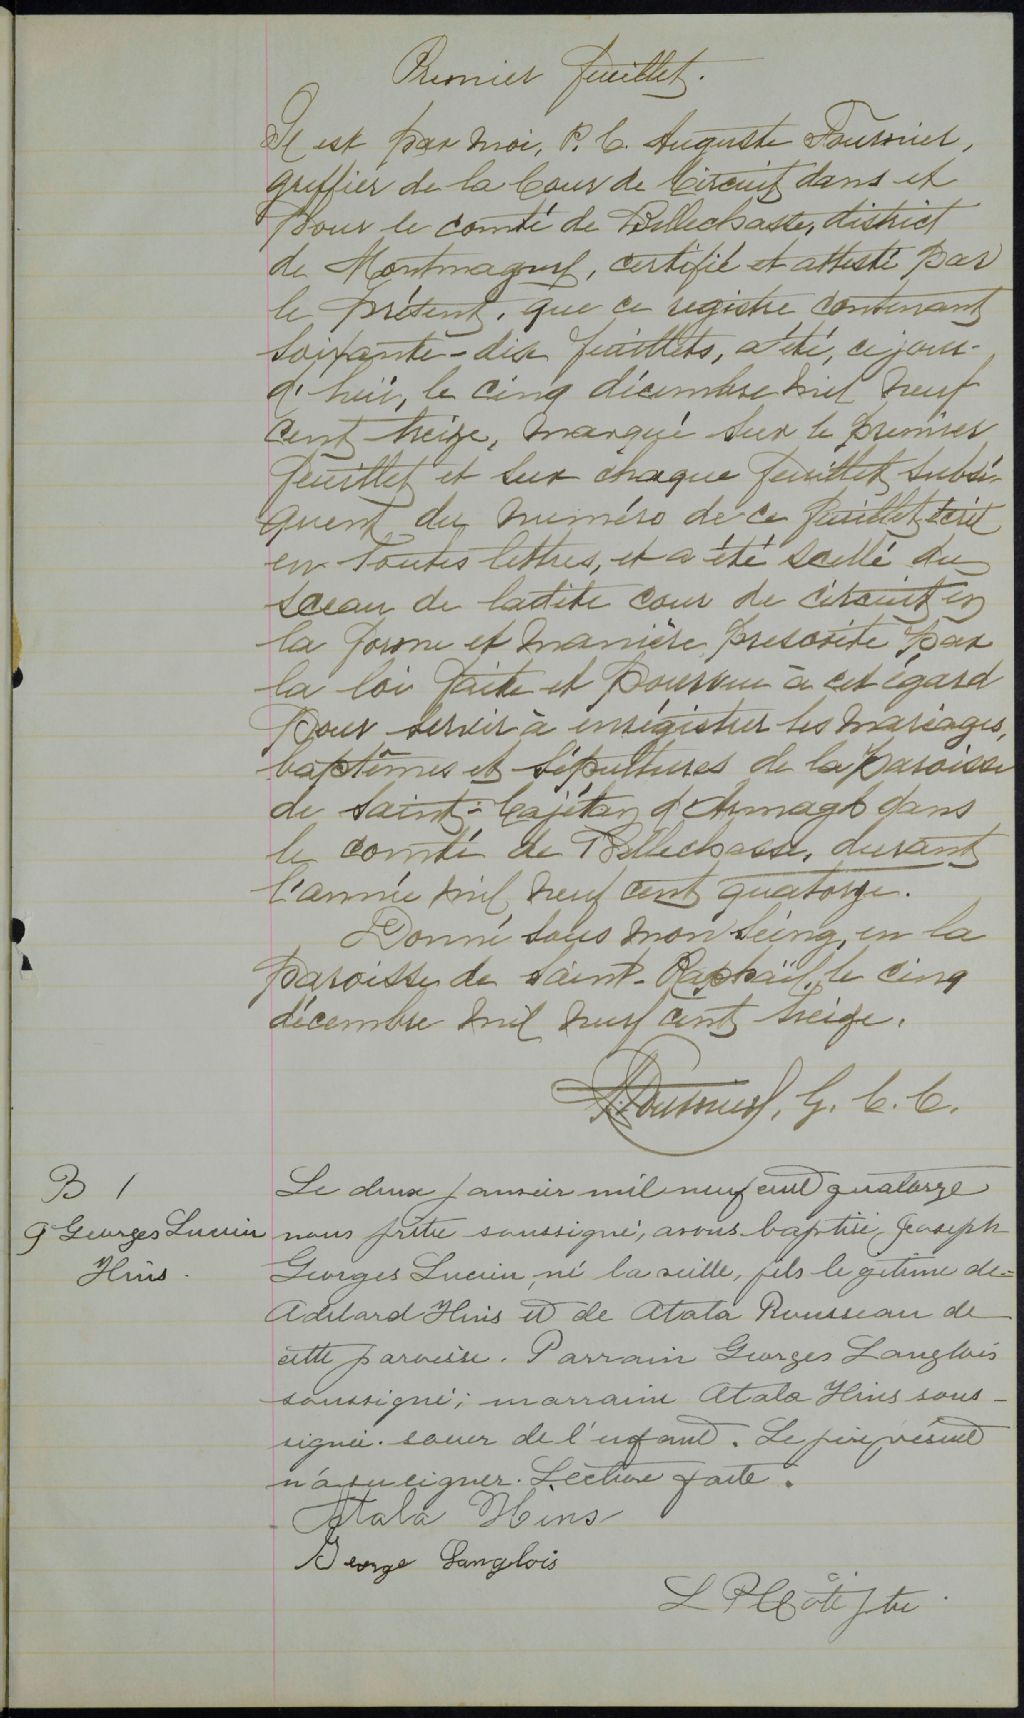 Premier feuillet.
Il est par moi, P. C. Auguste Fournier,
greffier de la Cour de Circuit dans et
pour le comté de Bellechasse, district
de Montmagny, certifié et attesté par
le présent, que ce registre contenant
soixante-dix feuillets, a été, ce jour-
d'hui, le cinq décembre mil neuf
cent treize, marqué sur le premier
feuillet et sur chaque feuillet subsé-
quent du numéro de ce feuillet écrit
en toutes lettres, et a été scellé du
sceau de ladite cour de circuit en
la forme et manière prescrite par
la loi faite et pourvue à cet égard
pour servir à enrégistrer les mariages,
baptêmes et sépultures de la paroisse
de Saint-Cajétan d'Armagh dans
le comté de Bellechasse, durant
l'année mil neuf cent quatorze.
Donné sous mon seing, en la
paroisse de Saint-Raphaël, le cinq
décembre mil neuf cent treize.
Fournier, G. C. C.
B 1
J Georges Lucien
Hins.
Le deux janvier mil neuf cent quatorze
nous prêtre soussigné, avons baptisé, Joseph
Georges Lucien, né la veille, fils légitime de
Adelard Hins et de Atala Rousseau de
cette paroisse. Parrain Georges Langlois
soussigné; marraine Atala Hins sous-
signée. soeur de l'enfant. Le père présent
n'a su signer. Lecture faite.
Atala Hins
George Langlois
L P Côté ptre